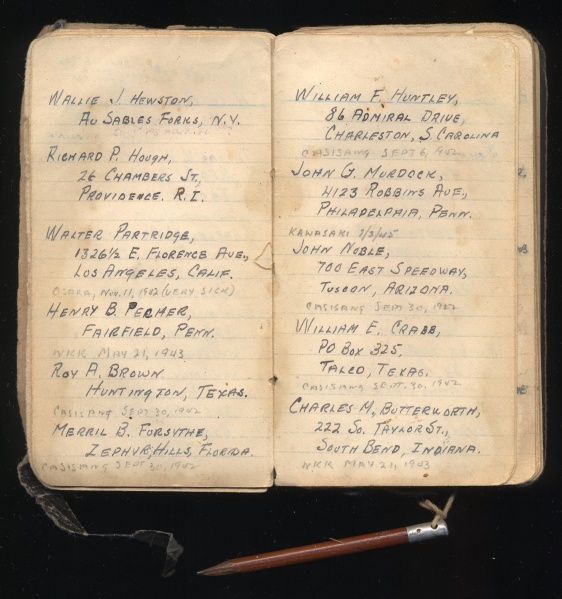 WALLIE J. HEWSTON,
AU SABLES FORKS, N.Y.
RICHARD P. HOUGH,
26 CHAMBERS ST.,
PROVIDENCE. R.I.
WALTER PARTRIDGE,
1326½ E. FLORENCE AVE.,
LOS ANGELES, CALIF.
OSAKA, NOV. 11, 1942 (VERY SICK)
HENRY B. PECHER,
FAIRFIELD, PENN.
NKK MAY 21, 1943
ROY A. BROWN
HUNTINGTON, TEXAS.
CASISANG SEPT 30, 1942
MERRIL B. FORSYTHE,
ZEPHYR,HILLS, FLORIDA.
CASISANG SEPT 30, 1942
WILLIAM F. HUNTLEY,
86 ADMIRAL DRIVE,
CHARLESTON, S. CAROLINA
CASISANG SEPT 6, 1942
JOHN G. MURDOCK,
4123 ROBBINS AVE.,
PHILADELPHIA, PENN.
KAWASAKI 3/3/45
JOHN NOBLE,
700 EAST SPEEDWAY,
TUSCON, ARIZONA.
CASISANG SEPT 30, 1942
WILLIAM E. CRABB,
PO BOX 325,
TALCO, TEXAS.
CASISANG SEPT. 30, 1942
CHARLES M. BUTTERWORTH,
222 SO. TAYLOR ST.,
SOUTH BEND, INDIANA.
NKK MAY 21, 1943